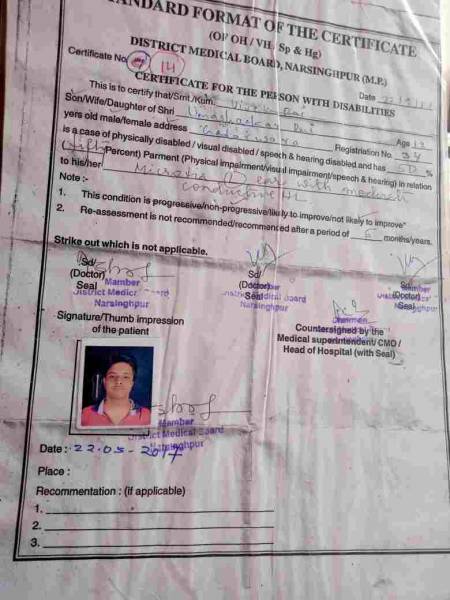 STANDARD FORMAT OF THE CERTIFICATE
(OF OH / VH / Sp & Hg)
DISTRICT MEDICAL BOARD, NARSINGHPUR (M.P.)
Certificate No. 14
Date
CERTIFICATE FOR THE PERSON WITH DISABILITIES
This is to certify that/Smt./Kum.
Son/Wife/Daughter of Shri Age 19
yers old male/female address Registration No. 34
is a case of physically disabled / visual disabled / speech & hearing disabled and has 50 %
(Fifty Percent) Parment (Physical impairment/visual impairment/speech & hearing) in relation
to his/her Microtia ear with
Note :- conductive HL
1. This condition is progressive/non-progressive/likely to improve/not likely to improve"
2. Re-assessment is not recommended/recommenced after a period of months/years.
Strike out which is not applicable.
Sd/ Sd/ Sd/
(Doctor) (Doctor) (Doctor)
Seal Seal Seal
Mamber
District Medical Board
Narsinghpur
Signature/Thumb impression
of the patient
Countersigned by the
Medical superintendent/ CMO /
Head of Hospital (with Seal)
Mamber
District Medical Board
Narsinghpur
Date : 22.05-2017
Place :
Recommentation : (if applicable)
1.
2.
3.